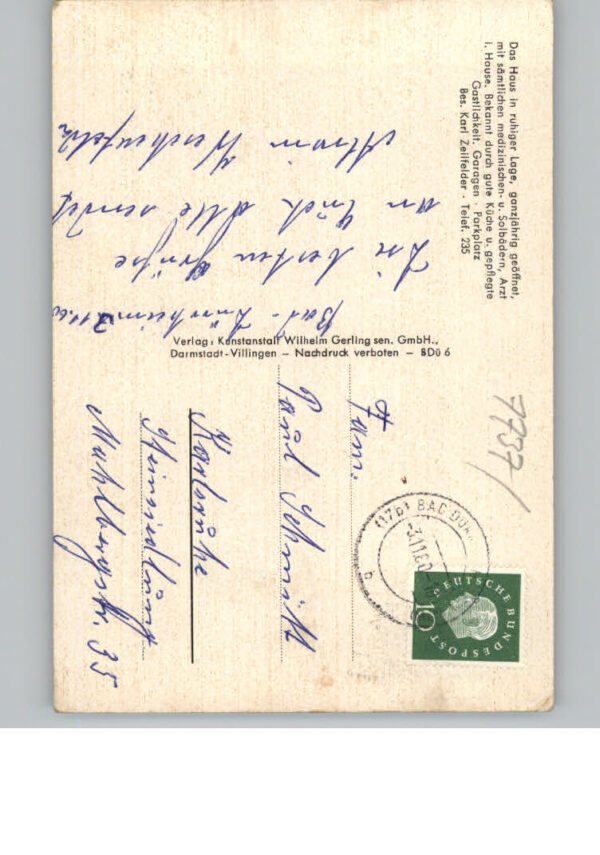 Das Haus in ruhiger Lage, ganzjährig geöffnet,
mit sämtlichen medizinischen- u. Solbädern, Arzt
i. Hause. Bekannt durch gute Küche u. gepflegte
Gastlichkeit. Garagen · Parkplatz
Bes. Karl Zeilfelder · Telef. 235
Bad-Dürrheim
Die besten Grüße
an Euch alle sendet
Verlag: Kunstanstalt Wilhelm Gerling sen. GmbH.,
Darmstadt-Villingen – Nachdruck verboten – BDü 6
7737
(17b) BAD DÜR
-3.11.60
b
DEUTSCHE BUNDESPOST
10
Fam.
Paul Schmitt
Karlsruhe
Mahlbergstr. 35